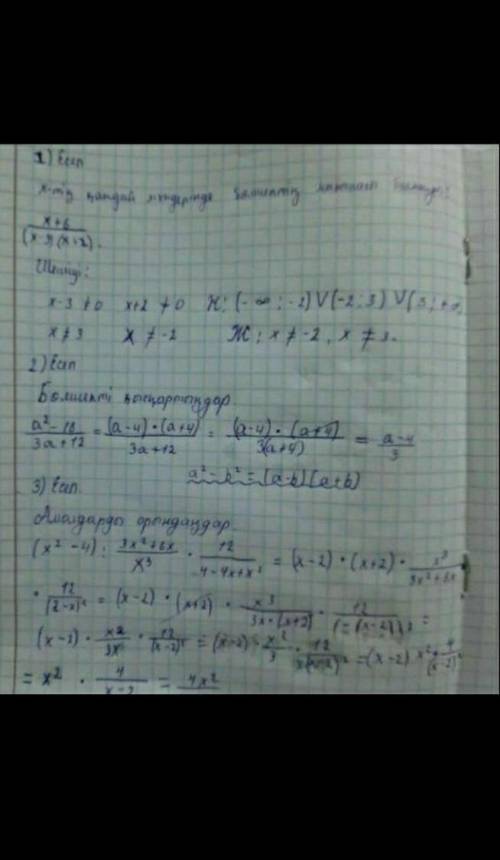 1) Есеп
x-тің қандай мәндерінде бөлшектің мағынасы болады?
x+6
(x-3)(x+2).
Шешуі:
x-3≠0 x+2≠0 Ж: (-∞; -2) V (-2; 3) V (3; +∞)
x≠3 x≠-2 Ж: x≠-2, x≠3.
2) Есеп
Бөлшекті қысқартыңдар.
a²-16 / 3a+12 = (a-4)·(a+4) / 3a+12 = (a-4)·(a+4) / 3(a+4) = a-4 / 3
a²-b²=(a-b)(a+b)
3) Есеп.
Амалдарды орындаңдар.
(x²-4) : 3x²+6x / x³ · 12 / 4-4x+x² = (x-2)·(x+2)· x³ / 3x²+6x
· 12 / (2-x)² = (x-2)·(x+2)· x³ / 3x·(x+2) · 12 / (-(x-2))² =
(x-2)· x2 / 3x · 12 / (x-2)² = (x-2)· x² / 3 · 12 / (x-2)² = (x-2) x²· 4 / (x-2)²
= x² · 4 / x-2 = 4x²